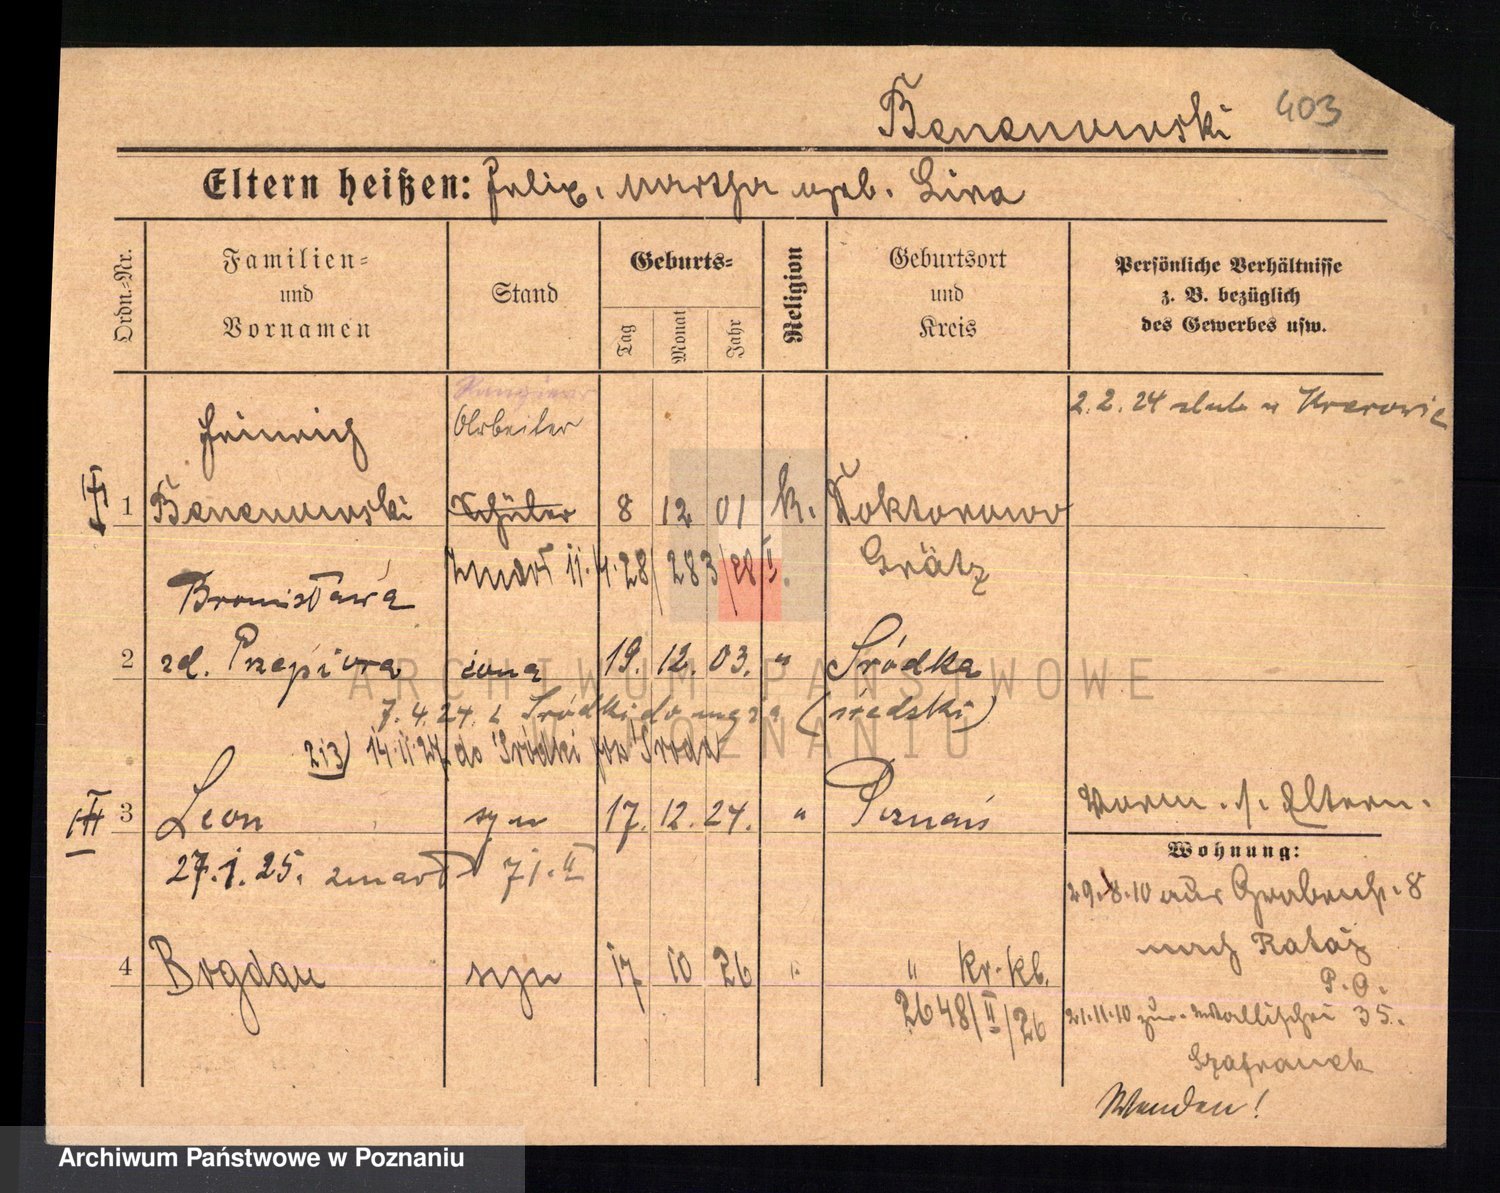 403
Eltern heißen: Felix, Martha geb. Lira
Ordn.-Nr.
Familien- und Vornamen
Stand
Geburts-
Tag
Monat
Jahr
Religion
Geburtsort und Kreis
Persönliche Verhältnisse z. B. bezüglich des Gewerbes usw.
2.2.24
Arbeiter
Heinrich
1 Schüler 8 12 01 k. Doktorowo
Grätz
zmarł 11.4.28/283/28 II.
Bronisława
2 zd. Przepióra żona 19. 12. 03. " Śródka
7.4.24. z Śródki do męża (średzki)
2 i 3) 14.11.24 do Śródki pow Środa
3 Leon syn 17. 12. 24. " Poznań
Vorm. s. Eltern.
27.1.25. zmarł 71.II
Wohnung:
29.8.10 aus Grabenstr. 8
nach Rataj
P.O.
4 Bogdan syn 17 10 26 " " kr. kb.
2648/II/26
21.11.10 zur. Wallischei 35.
Szafranek
Wenden!
ARCHIWUM PAŃSTWOWE
W POZNANIU
Archiwum Państwowe w Poznaniu